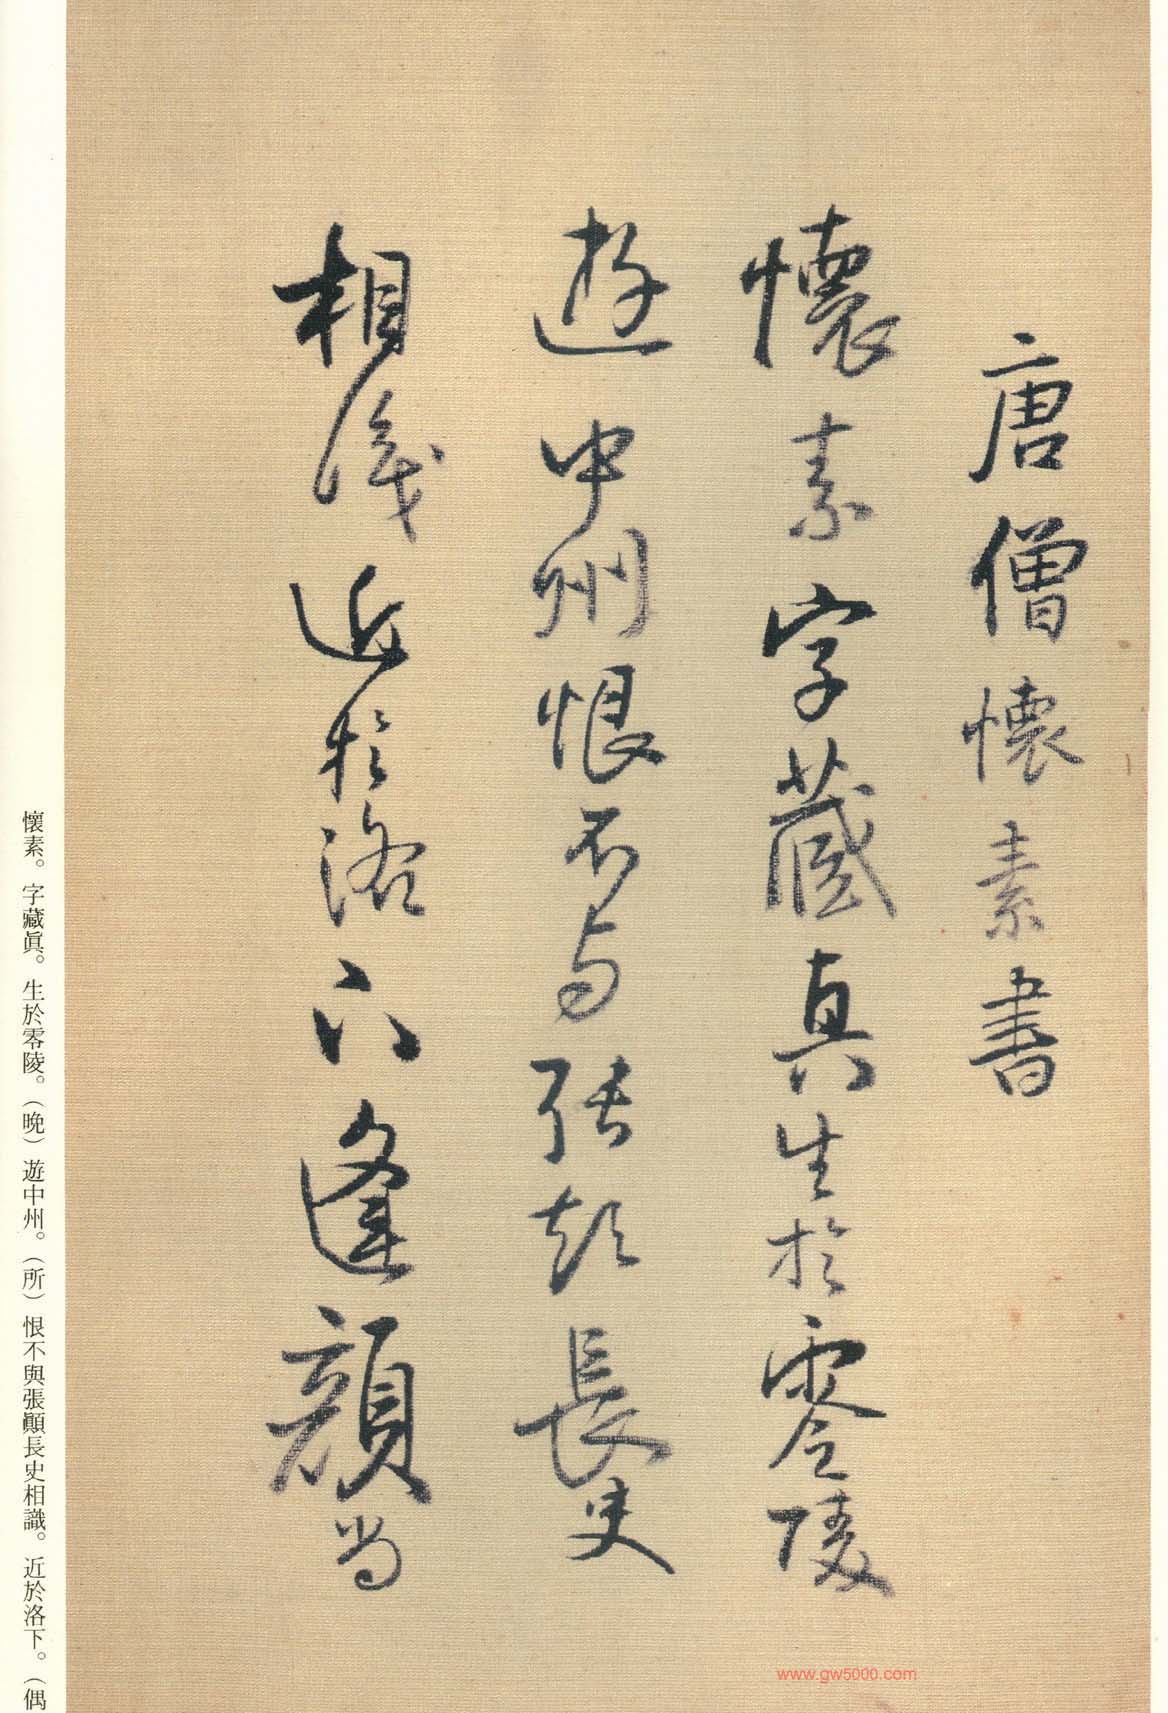 唐僧懷素書
懷素字藏真生於零陵
遊中州恨不与張顛長史
相識近於洛下逢顏尚
懷素。字藏眞。生於零陵。（晚）遊中州。（所）恨不與張顚長史相識。近於洛下。（偶
www.gw5000.com